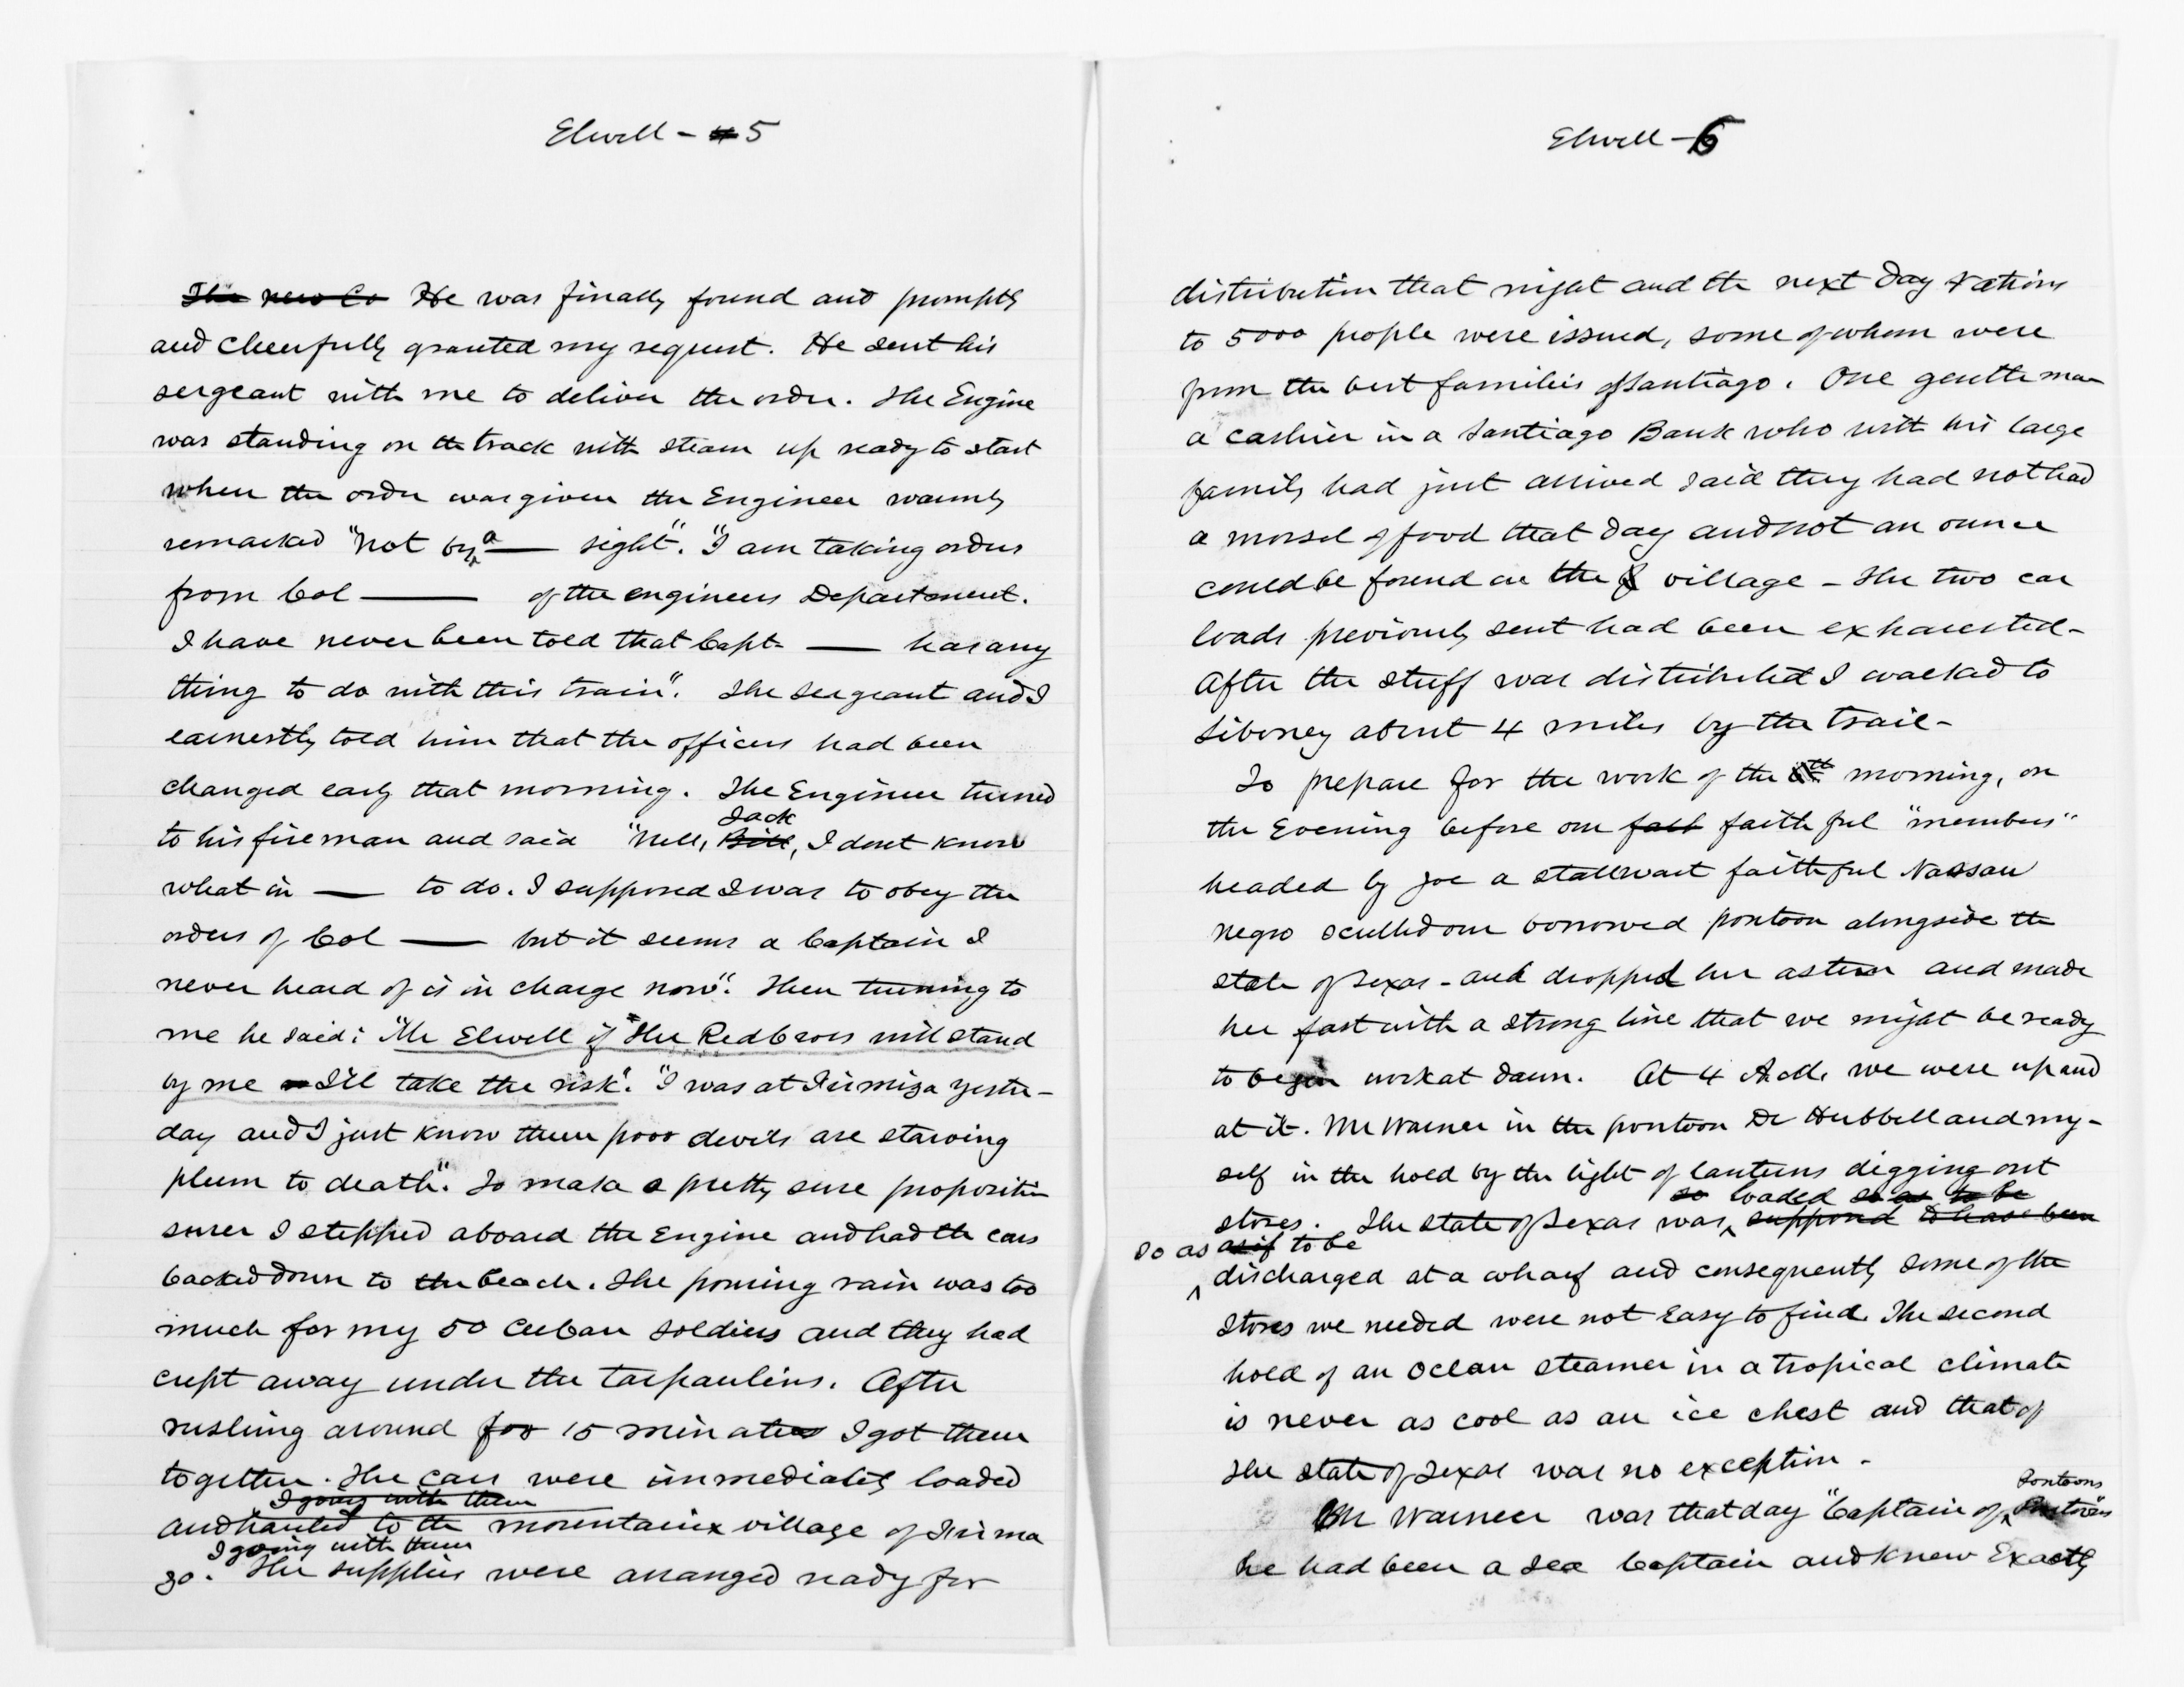 Elwell - 5
The new Co He was finally found and promptly
and cheerfully granted my request. He sent his
sergeant with me to deliver the order. The Engine
was standing on the track with steam up ready to start
when the order was given the Engineer warmly
remarked "Not by a — sight". "I am taking orders
from Col —— of the engineers Department.
I have never been told that Capt- —— has any
thing to do with this train". The sergeant and I
earnestly told him that the officers had been
changed early that morning. The Engineer turned
Jack
to his fireman and said "Well, Bill, I dont know
what in —— to do. I supposed I was to obey the
orders of Col —— but it seems a Captain I
never heard of is in charge now". Then turning to
me he said: "Mr Elwell if The Red Cross will stand
by me I'll take the risk". "I was at Firmiza yester-
day and I just know them poor devils are starving
plum to death". To make a pretty sure proposition
surer I stepped aboard the Engine and had the cars
backed down to the beach. The pouring rain was too
much for my 50 Cuban soldiers and they had
crept away under the tarpaulins. After
rushing around for 15 minutes I got them
together. The cars were immediately loaded
I going with them
and hauled to the mountain village of Firma
I going with them
za. The supplies were arranged ready for
Elwell - 6
distribution that night and the next day rations
to 5000 people were issued, some of whom were
from the best families of Santiago. One gentleman
a cashier in a Santiago Bank who with his large
family had just arrived said they had not had
a morsel of food that day and not an ounce
could be found in the village - The two car
loads previously sent had been exhausted-
After the stuff was distributed I walked to
Siboney about 4 miles by the trail-
To prepare for the work of the 6th morning, on
the Evening before our faithful "members"
headed by Joe a stallwart faithful Nassau
negro sculled our borrowed pontoon alongside the
State of Texas - and dropped her astern and made
her fast with a strong line that we might be ready
to begin work at dawn. At 4 A.M. we were up and
at it. Mr Warner in the pontoon Dr Hubbell and my-
self in the hold by the light of lanterns digging out
so loaded so as to be
stores. The State of Texas was supposed to have been
so as as if to be
discharged at a wharf and consequently some of the
stores we needed were not Easy to find. The second
hold of an Ocean steamer in a tropical climate
is never as cool as an ice chest and that of
the State of Texas was no exception-
Pontoons
Mr Warner was that day "Captain of Pontoons"
he had been a Sea Captain and knew Exactly